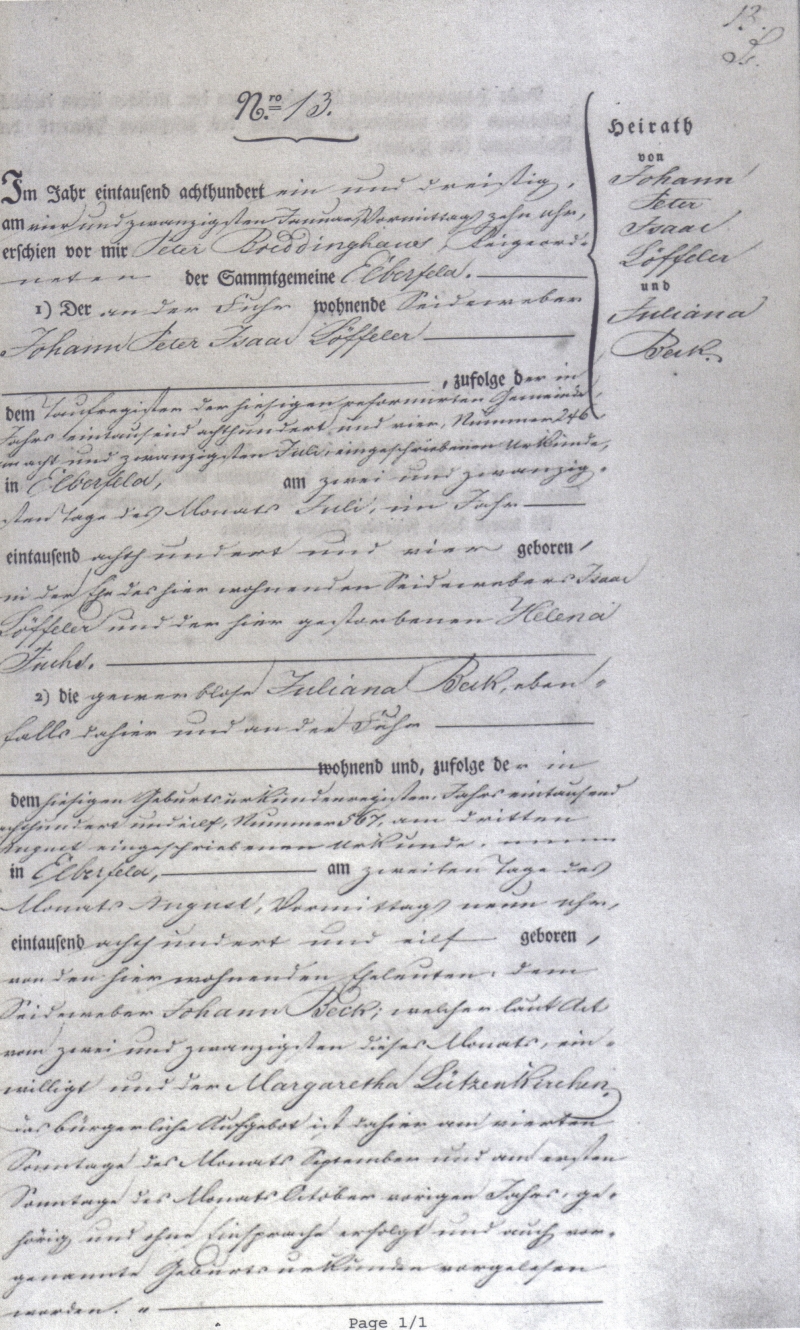 13.
N.ro 13.
Heirath
von
Johann
Peter
Isaac
Löffeler
und
Juliana
Beck.
Im Jahr eintausend achthundert ein und dreissig,
am vier und zwanzigsten Januar Vormittags zehn Uhr,
erschien vor mir Peter Breddinghaus, Beigeord-
neten der Sammtgemeine Elberfeld.
1) Der an der Fuhr wohnende Seideweber
Johann Peter Isaac Löffeler
, zufolge der in
dem Taufregister der hiesigen reformirten Gemeinde,
Jahrs eintausend achthundert und vier, Nummer 246
acht und zwanzigsten Juli, eingeschriebenen Urkunde,
in Elberfeld, am zwei und zwanzig-
sten Tage des Monats Juli, im Jahr
eintausend achthundert und vier geboren,
in der Ehe des hier wohnenden Seidewebers Isaac
Löffeler und der hier gestorbenen Helena
Fuchs.
2) die gewerblose Juliana Beck, eben-
falls dahier und an der Fuhr
wohnend und, zufolge der in
dem hiesigen Geburtsurkundenregister, Jahrs eintausend
achthundert und eilf, Nummer 567, am dritten
August eingeschriebenen Urkunde,
in Elberfeld, am zweiten Tage des
Monats August, Vormittags neun Uhr,
eintausend achthundert und eilf geboren,
von den hier wohnenden Eheleuten, dem
Seideweber Johann Beck, welcher laut Act
vom zwei und zwanzigsten dieses Monats, ein-
willigt und der Margaretha Lützenkirchen,
das bürgerliche Aufgebot ist dahier am vierten
Sonntage des Monats September und am ersten
Sonntage des Monats October vorigen Jahrs, ge-
hörig und ohne Einsprache erfolgt und auch vor-
genannte Geburtsurkunden vorgelesen
worden.
Page 1/1